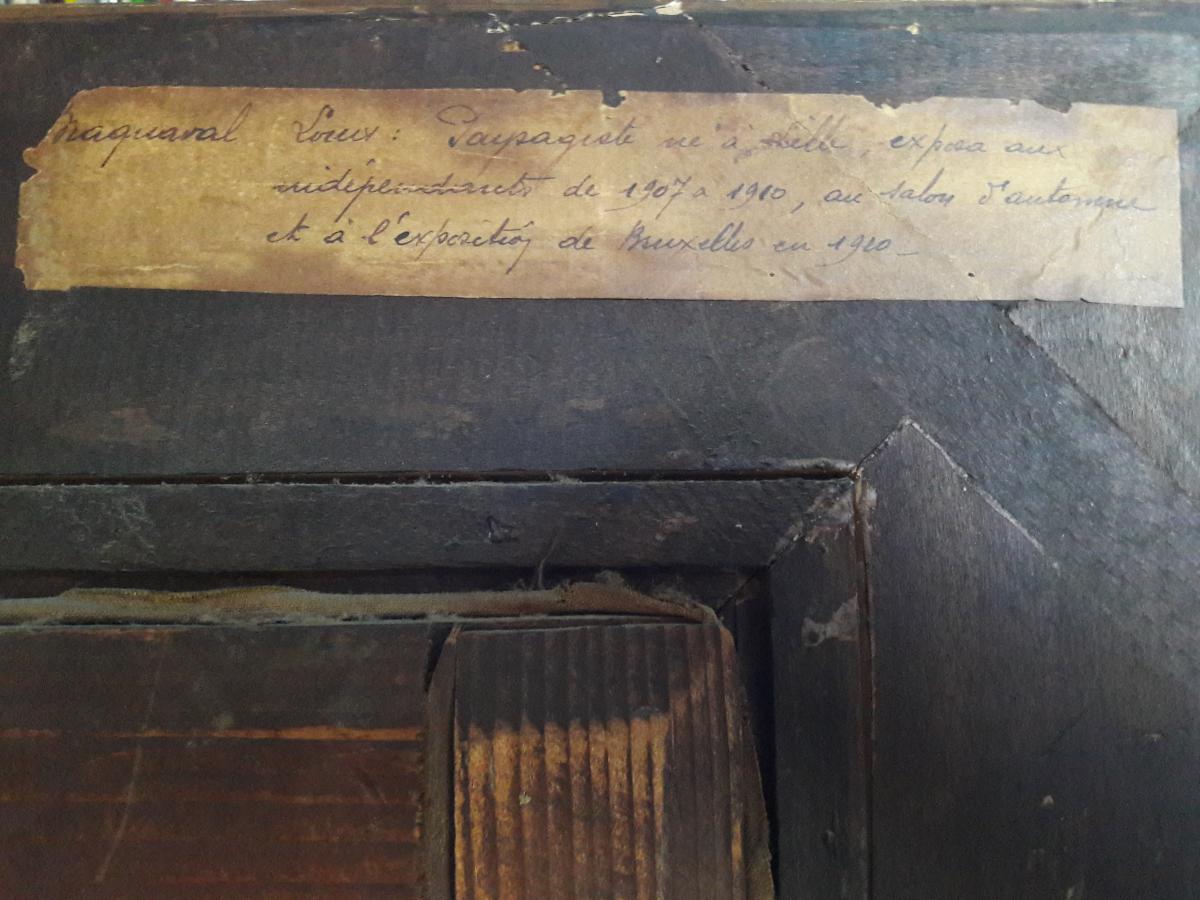 Maquaval Louis : Paysagiste né à Lille, exposa aux
indépendants de 1907 à 1910, au salon d'automne
et à l'exposition de Bruxelles en 1910_